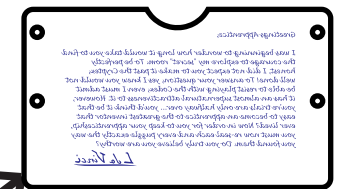 Greetings Apprentice,
I was beginning to wonder how long it would take you to find
the courage to explore my 'secret' room. To be perfectly
honest, I did not expect you to make it past the Cryptex,
well done! To answer your question, yes I knew you would not
be able to resist playing with the Codex, even I must admit
it has an almost supernatural attractiveness to it. However,
you're trials are only halfway over... did you think it would be
easy to become an apprentice to the greatest inventor that
ever lived? Now in order for you to keep your apprenticeship,
you must now re-seal each and every puzzle exactly the way
you found them. Do you truly believe you are worthy?
L. da Vinci